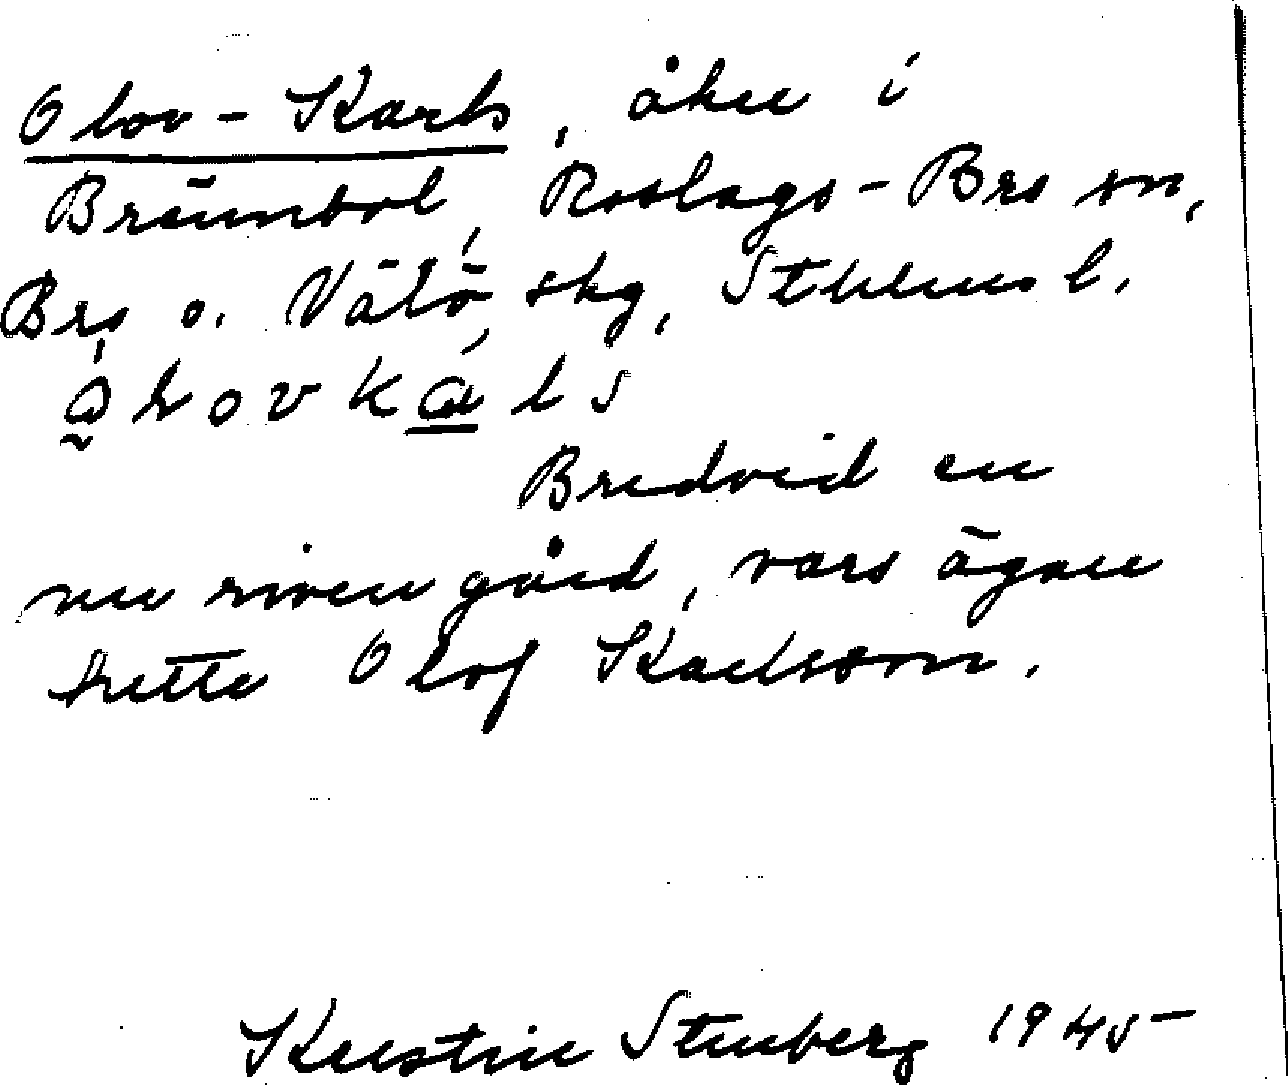 Olov-Karls, åker i
Brännbol, Roslags-Bro sn,
Bro o. Vätö skg, Sthlms l.
ọ̀lovkạls
Bredvid en
nu riven gård, vars ägare
hette Olof Karlsson.
Kerstin Stenberg 1945